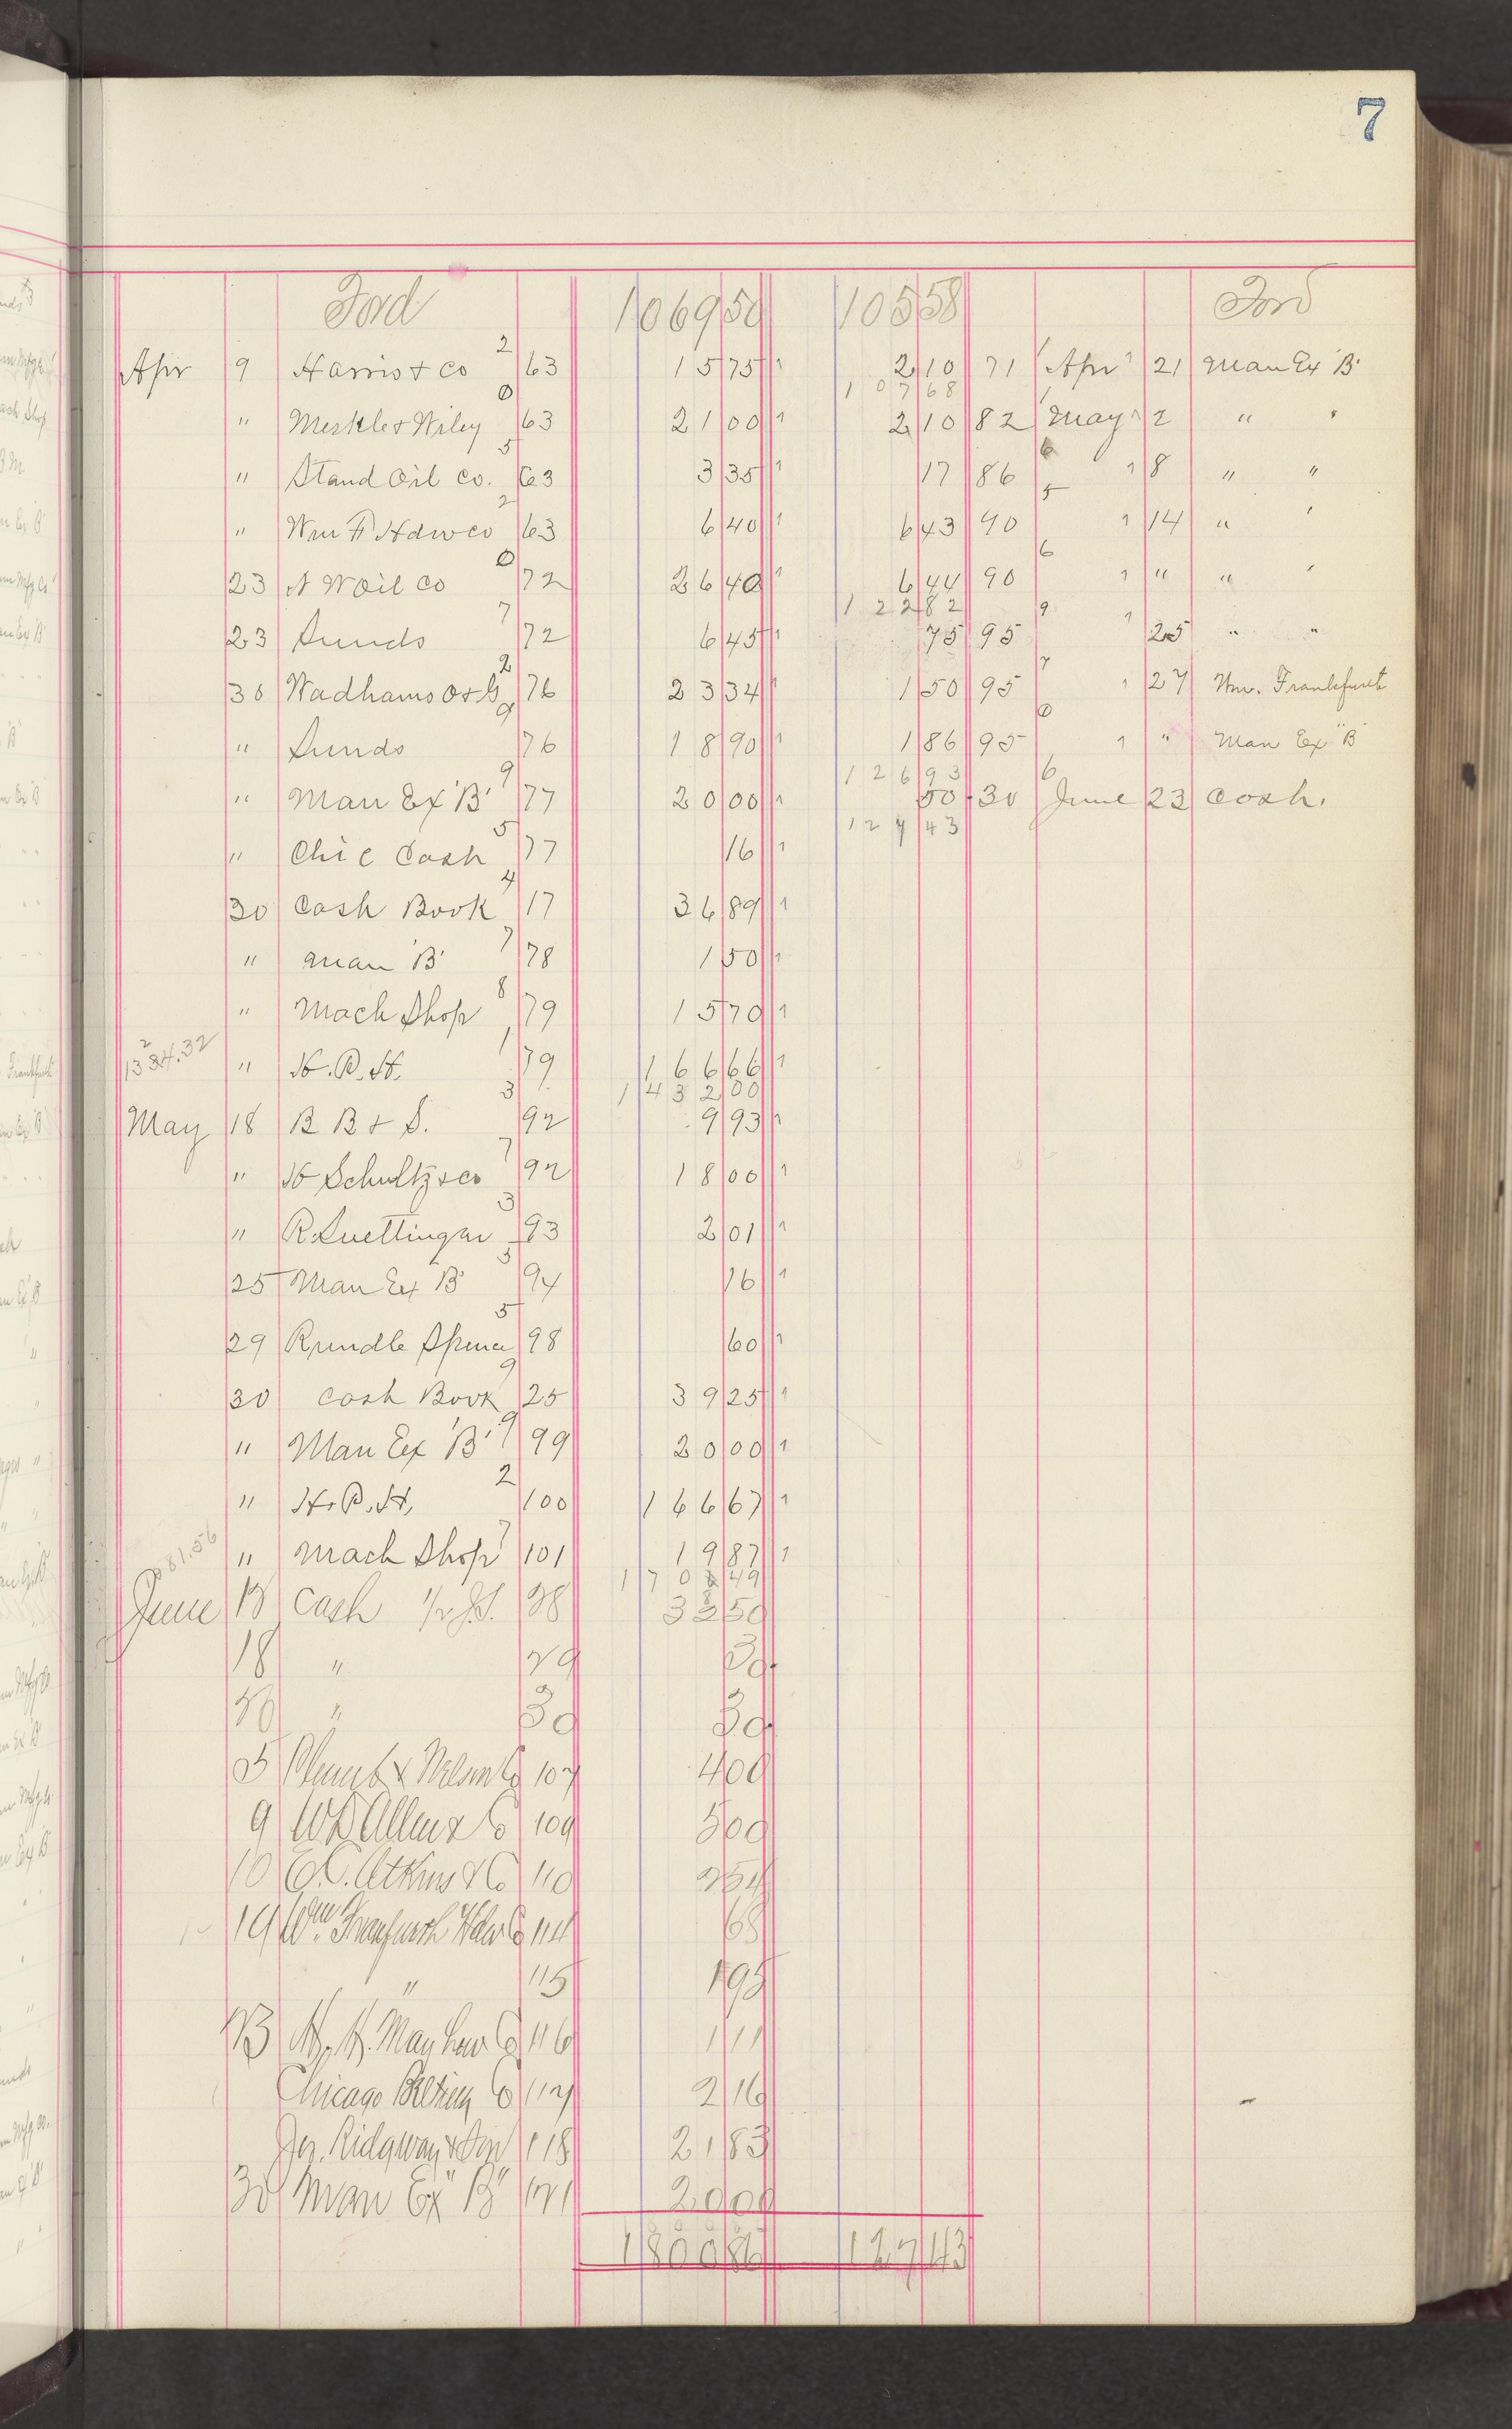 7
Ford 1069 50 105 58 Ford
Apr 9 Harris & Co 2 63 15 75 2 10 71 Apr 21 Man Ex "B"
107 68
" Merkle & Wiley 0 63 21 00 2 10 82 May 2 " "
" Stand Oil Co. 5 63 3 35 17 86 6 8 " "
" Wm F Hdw Co 2 63 6 40 6 43 90 5 14 " "
23 N W Oil Co 0 72 26 40 6 44 90 6 " " "
122 82
23 Sunds 7 72 6 45 75 95 9 25 " "
30 Wadhams O & G 2 76 23 34 1 50 95 7 27 Wm. Frankfurth
" Sunds 9 76 18 90 1 86 95 0 " Man Ex "B"
126 93
" Man Ex "B" 9 77 20 00 50 30 6 June 23 Cash.
127 43
" Chic Cash 5 77 16
30 Cash Book 4 17 36 89
" Man "B" 7 78 1 50
" Mach Shop 8 79 15 70
1334.32 " H.P.H. 1 79 166 66
1432 00
May 18 B B & S. 3 92 9 93
" H Schultz & Co 7 92 18 00
" R. Suettingar 3 93 2 01
25 Man Ex "B" 3 94 16
29 Rundle Spence 5 98 60
30 Cash Book 9 25 39 25
" Man Ex "B" 9 99 20 00
" H.P.H. 2 100 166 67
" Mach Shop 7 101 19 87
81.56
June 13 Cash 1/2 J.S. 28 33 50
18 " 29 30
20 " 30 30
5 Plumb & Nelson Co 107 4 00
9 W D Allen & Co 109 5 00
10 E.C. Atkins & Co 110 2 54
19 Wm. Franfurth Hdw Co 114 68
" 115 1 95
23 H. H. Mayhew Co 116 1 11
Chicago Belting Co 117 2 16
Jas. Ridgway & Son 118 21 83
30 Man Ex "B" 121 20 00
1800 86 127 43